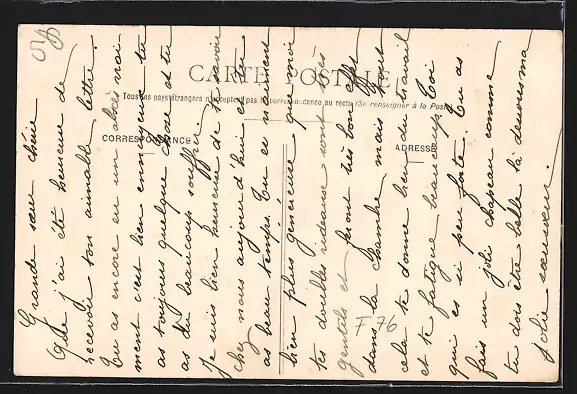 CARTE POSTALE
Tous les pays étrangers n'acceptent pas la correspondance au recto (Se renseigner à la Poste)
CORRESPONDANCE
ADRESSE
Grande sœur chérie
Que j'ai été heureuse de
recevoir ton aimable lettre.
Tu as encore eu un abcès vrai-
ment c'est bien ennuyeux tu
as toujours quelque chose et tu
as dû beaucoup souffrir
Je suis bien heureuse de te savoir
chez nous aujourd'hui et
as beau temps. Tu es vraiment
bien plus généreuse que moi
tes doubles rideaux sont très
gentils et feront très bon effet
dans la chambre mais tout
cela te donne bien du travail
et te fatigue toi
qui es si peu forte. Tu as
fais un joli chapeau comme
tu dois être belle là dessous ma
jolie sœusœur.
F 76